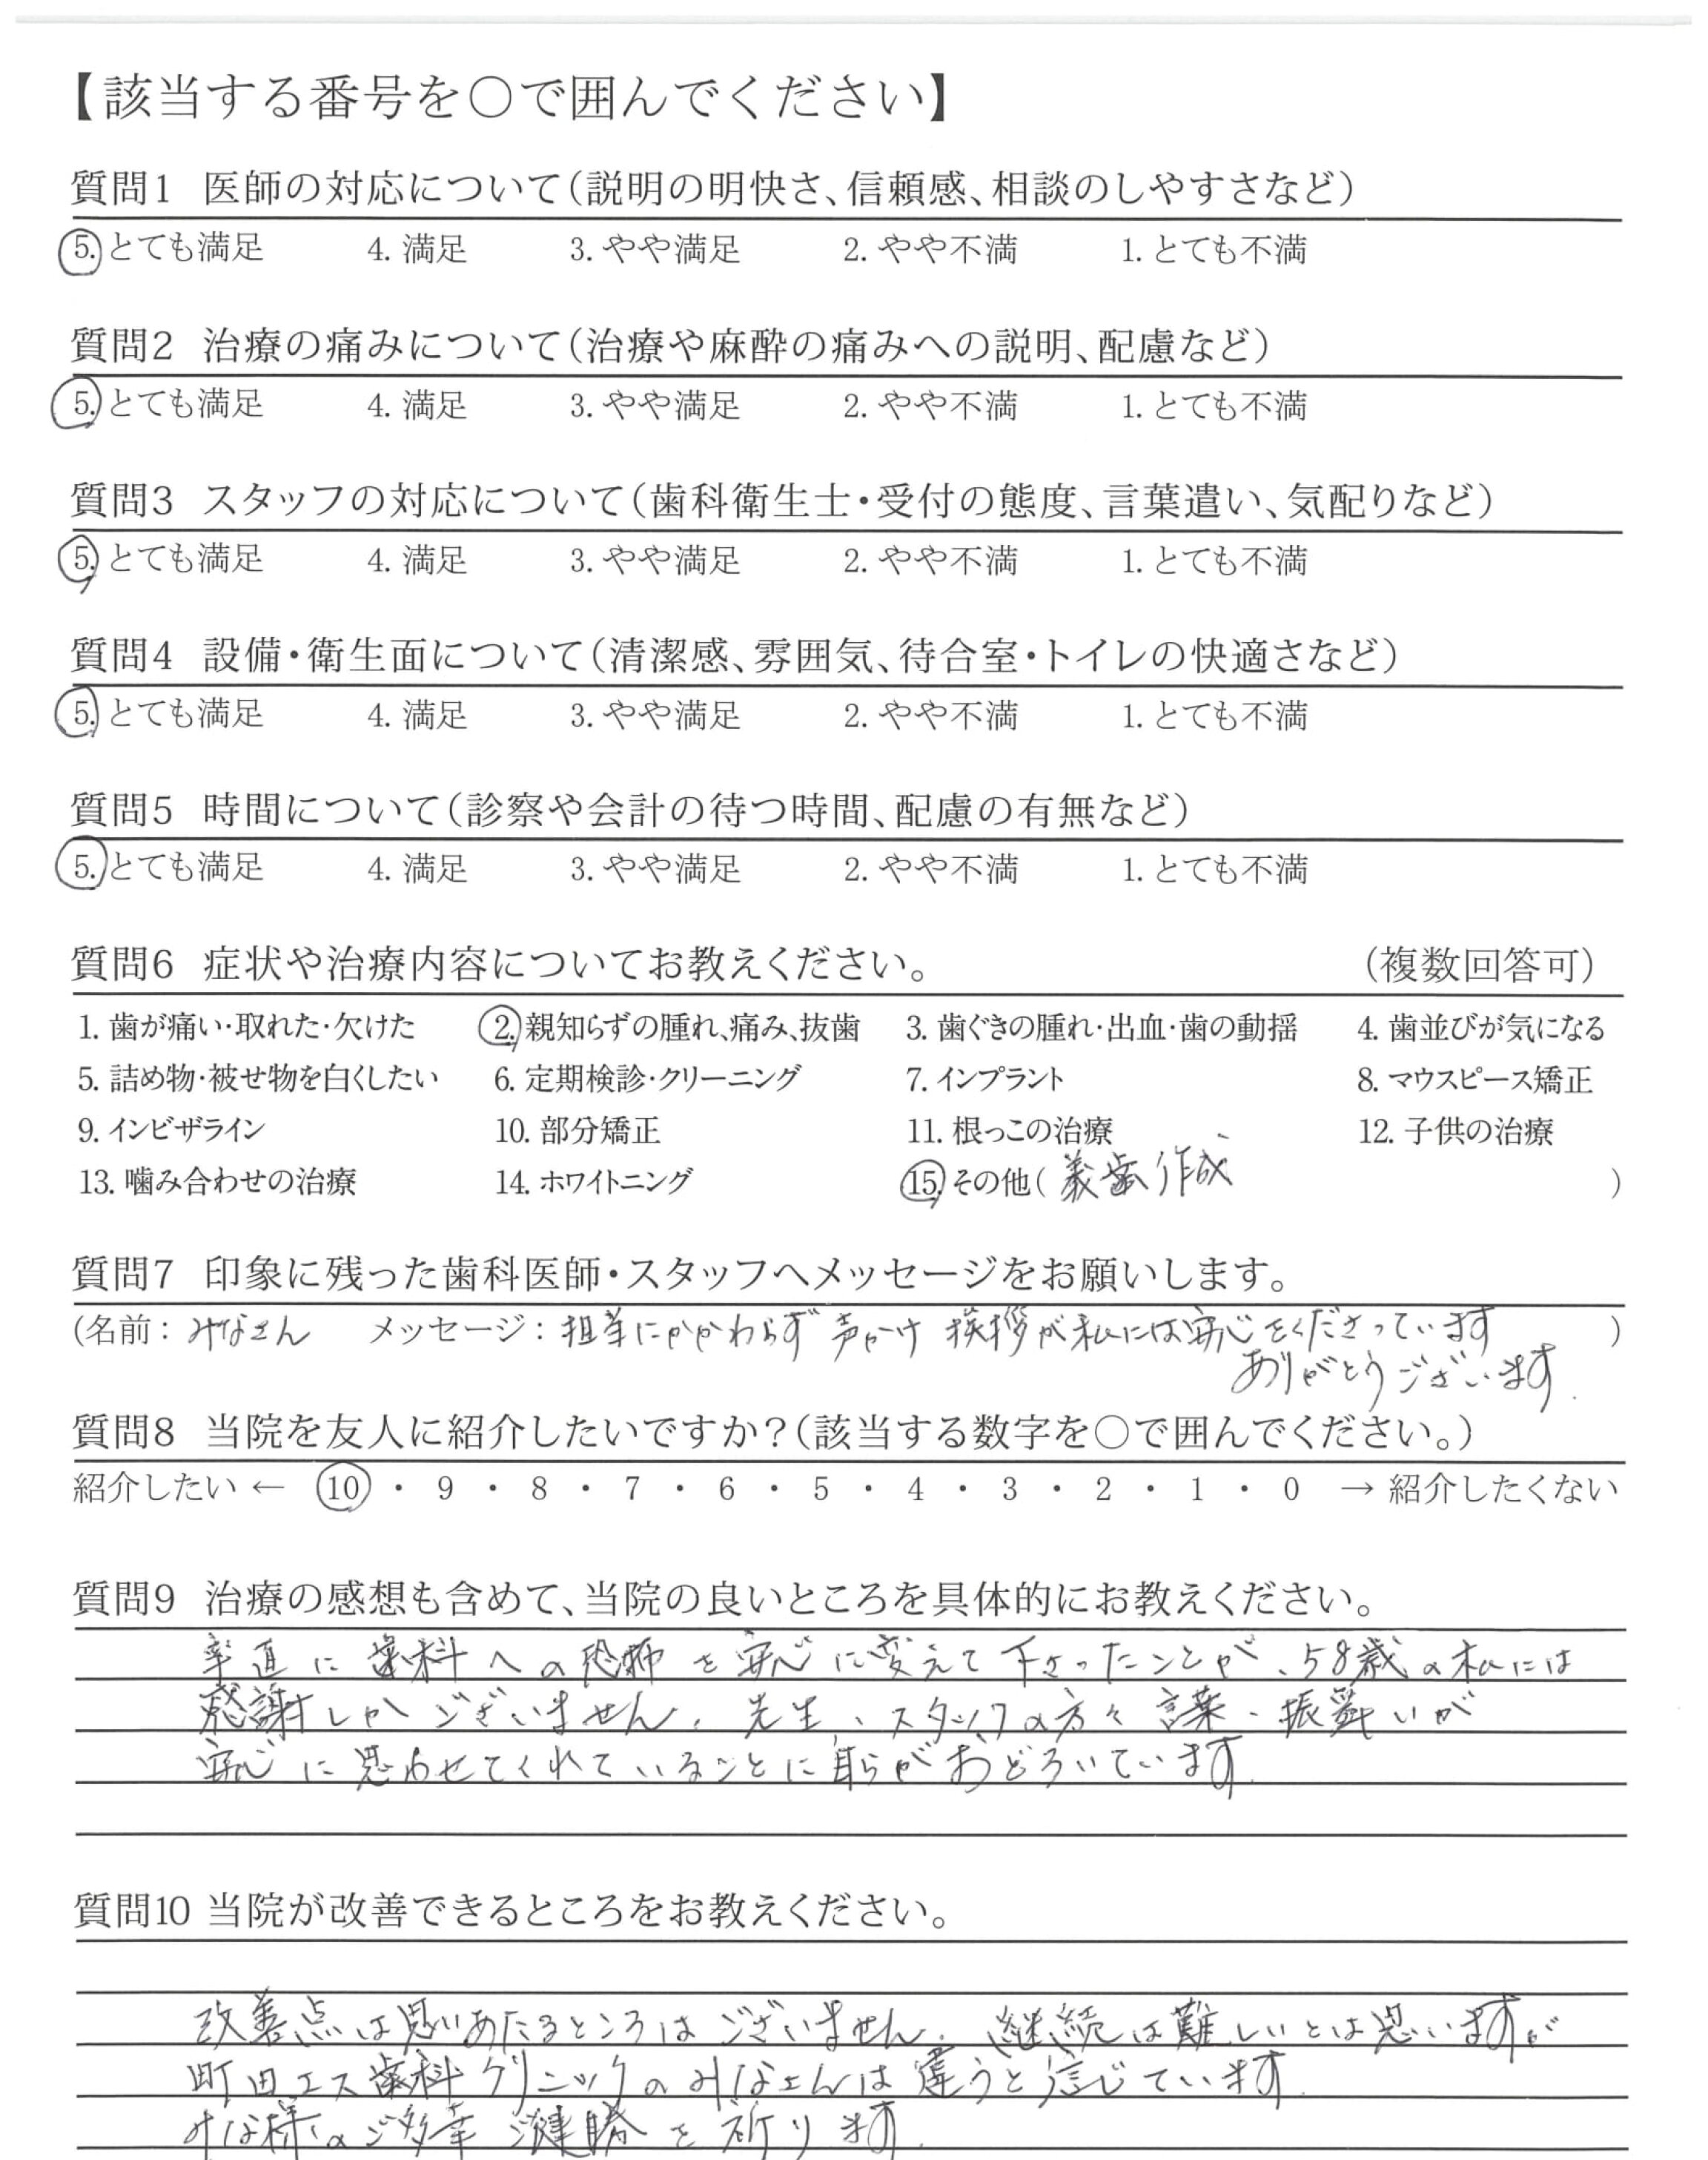 【該当する番号を○で囲んでください】
質問1 医師の対応について(説明の明快さ、信頼感、相談のしやすさなど)
5. とても満足 4. 満足 3. やや満足 2. やや不満 1. とても不満
質問2 治療の痛みについて(治療や麻酔の痛みへの説明、配慮など)
5. とても満足 4. 満足 3. やや満足 2. やや不満 1. とても不満
質問3 スタッフの対応について(歯科衛生士・受付の態度、言葉遣い、気配りなど)
5. とても満足 4. 満足 3. やや満足 2. やや不満 1. とても不満
質問4 設備・衛生面について(清潔感、雰囲気、待合室・トイレの快適さなど)
5. とても満足 4. 満足 3. やや満足 2. やや不満 1. とても不満
質問5 時間について(診察や会計の待つ時間、配慮の有無など)
5. とても満足 4. 満足 3. やや満足 2. やや不満 1. とても不満
質問6 症状や治療内容についてお教えください。 (複数回答可)
1. 歯が痛い・取れた・欠けた 2. 親知らずの腫れ、痛み、抜歯 3. 歯ぐきの腫れ・出血・歯の動揺 4. 歯並びが気になる
5. 詰め物・被せ物を白くしたい 6. 定期検診・クリーニング 7. インプラント 8. マウスピース矯正
9. インビザライン 10. 部分矯正 11. 根っこの治療 12. 子供の治療
13. 噛み合わせの治療 14. ホワイトニング 15. その他( 義歯作成 )
質問7 印象に残った歯科医師・スタッフへメッセージをお願いします。
(名前: みなさん メッセージ: 担当にかかわらず 声かけ 挨拶が私には安心をくださっています )
ありがとうございます.
質問8 当院を友人に紹介したいですか?(該当する数字を○で囲んでください。)
紹介したい ← 10 ・ 9 ・ 8 ・ 7 ・ 6 ・ 5 ・ 4 ・ 3 ・ 2 ・ 1 ・ 0 → 紹介したくない
質問9 治療の感想も含めて、当院の良いところを具体的にお教えください。
率直に歯科への恐怖を安心に変えて下さったことが、58歳の私には
感謝しかございません. 先生、スタッフの方々 言葉、振舞いが
安心に思わせてくれていることに自らがおどろいています.
質問10 当院が改善できるところをお教えください。
改善点は思いあたるところはございません. 継続は難しいとは思いますが
町田エス歯科クリニックのみなさんは違うと信じています.
みな様のご多幸 ご健勝を祈ります.